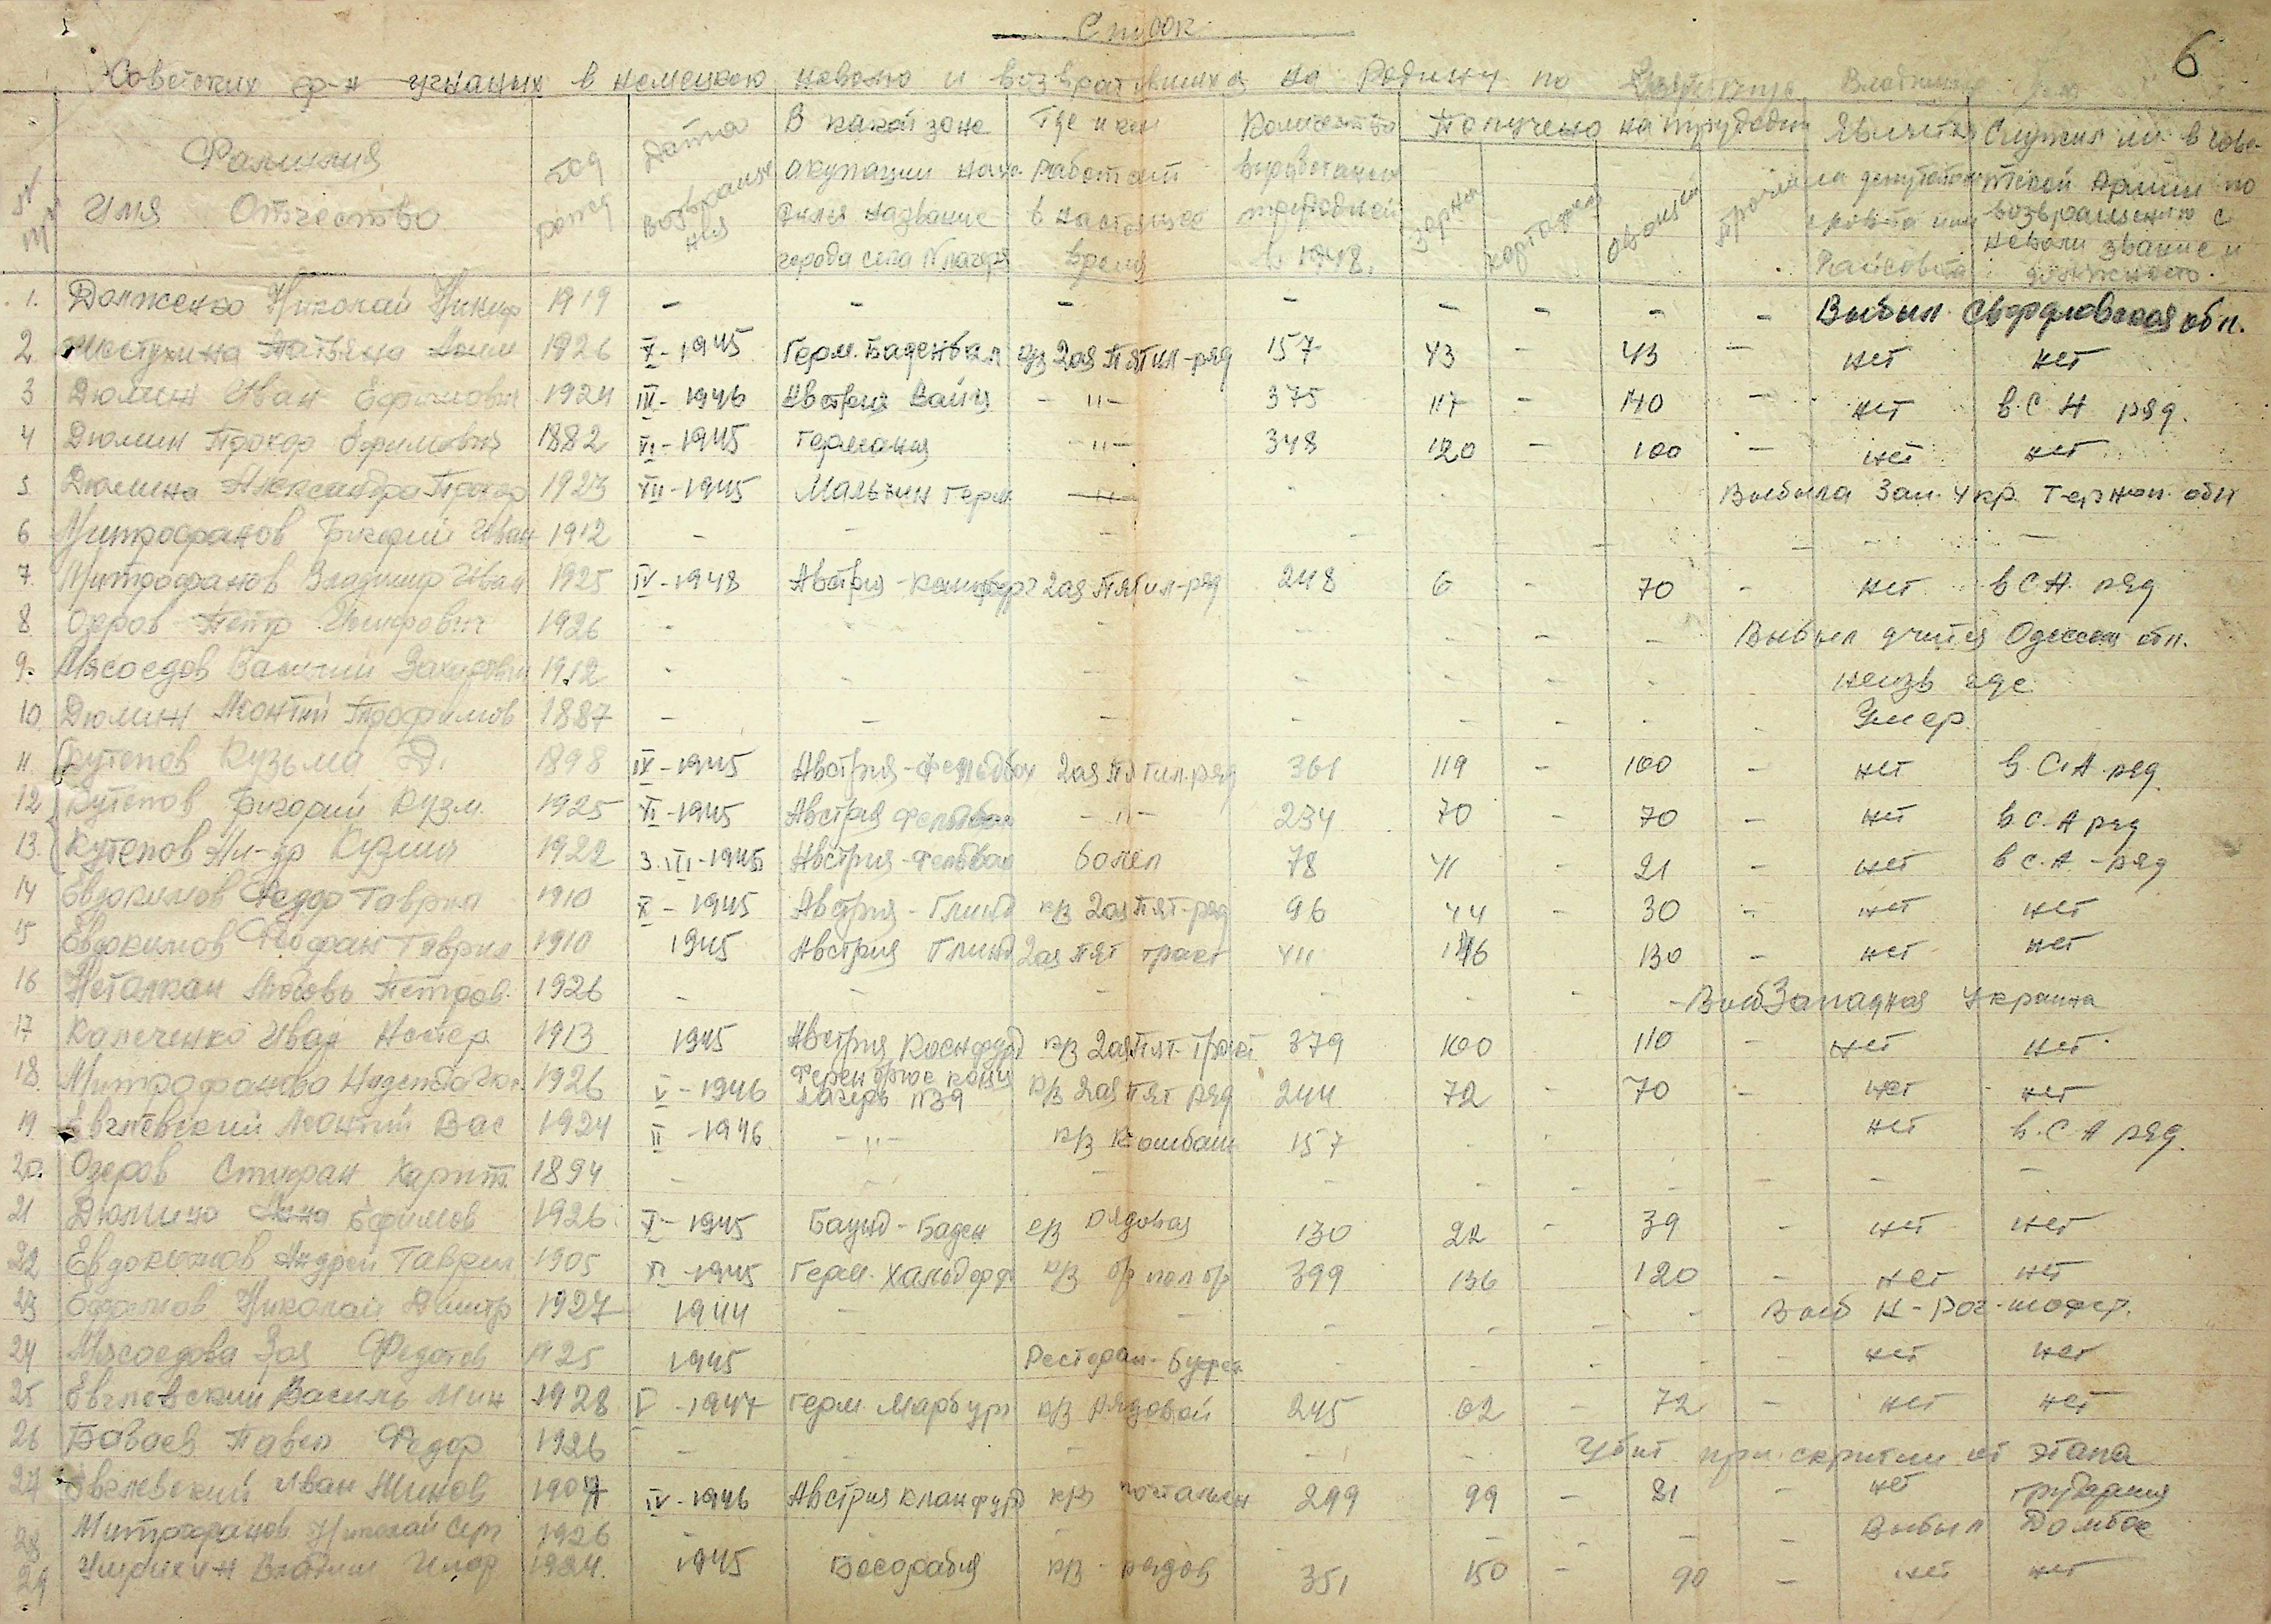 Список
6
Советских гр-н угнаных в немецкою неволю и возвратившихся на Родину по
№ п/п
Фамилия Имя Отчество
год рожд
Дата возвращения
В какой зоне акупации находился название города села № лагеря
Где и кем работает в настоящее время
Количество выработаных трудодней в 1948.
Получено на трудодни
зерна
картофеля
овощей
Является ли депутатом с/совета или Райсовета
Служил ли в Советской Армии по возвращению с неволи звание и должность.
1. Долженко Николай Никиф 1919 - - - - - - - - Выбыл Свердловская обл.
2 Татьяна 1926 X-1945 Герм. Баденвал к/з 2ая Пятил-ряд 157 43 - 43 - нет нет
3 Дюмин Иван Ефимович 1924 III-1946 Австрия Вайц - " - 375 117 - 140 - нет в.С.А ряд.
4 Дюмин Прокор Ефимович 1882 VI-1945 Германия - " - 348 120 - 100 - нет нет
5 Дюмина Александра Прокор 1923 XII-1945 Мальхин Герм - " - Выбыла Зап. Укр. Терноп. обл
6 Митрофанов Григорий Иван 1912 - - - - - - - -
7. Митрофанов Владимир Иван 1925 IV-1948 Австрия - 2ая Пятил-ряд 248 6 - 70 - нет в С.А. ряд
8 Озеров Петр 1926 - - - - - - - Выбыл учится Одесская обл.
9. Мясоедов Василий Захарович 1912 - - - - - - - неизв где
10 Дюмин Леонтий Трофимов 1887 - - - - - - - - Умер.
11 Кутепов Кузьма Д. 1898 IX-1945 Австрия-Фельдбах 2ая Пятил. ряд 361 119 - 100 - нет в. С.А. ряд
12 Кутепов Григорий Кузм. 1925 XI-1945 Австрия Фельдбах - " - 234 70 - 70 - нет в С.А ряд
13. Кутепов Ал-др Кузмич 1922 3.III-1945 Австрия-Фельбах болел 78 41 - 21 - нет в С.А - ряд
14 Евдокимов Федор Гаврил 1910 X - 1945 Австрия - Глинд к/з 2ая Пят-ряд 96 44 - 30 - нет нет
15 Евдокимов Феофан Гаврил 1910 1945 Австрия Глинд 2ая Пят тракт 411 146 130 - нет нет
16 Любовь Петров. 1926 - - - - - - - Выб Западная Украина
17 Капеченко Иван Нестер. 1913 1945 Австрия к/з 2ая Пят-Тракт 379 100 110 - нет нет.
18. Митрофанова Надежда 1926 V - 1946 лагерь №39 к/з 2ая Пят ряд 244 72 - 70 - нет нет
19 Евглевский Леонтий Вас 1924 II - 1946 - " - к/з Комбайн 157 нет в. С А ряд.
20. Озеров Стифан Харит. 1894 - - - - - - - - - -
21 Дюмина Анна Ефимов 1926. X-1945 Баунд-Баден к/з рядовая 130 22 - 39 - нет нет
22 Евдокимов Андрей Гаврил 1905 XI-1945 Герм. Хальдорф к/з бр пол бр 399 136 120 - нет нет
23 Ефремов Николай Дмитр 1927 1944 - - - - - - Выб К-Рог-шофер.
24 Мясоедова Зоя Федотов 1925 1945 Ресторан-Буфет - - - - - нет нет
25 Евглевский Василь Мин 1928 V -1947 Герм. Марбург к/з рядовой 245 62 - 72 - нет нет
26 Бабаев Павел Федор 1926 - - - - Убит при скрытии от этапа
27 Евглевский Иван Минов 1907 IV-1946 Австрия кланфурд к/з почтальон 299 99 - 81 - нет трудармия
28 Митрофанов Николай Серг 1926 - - - - - - - Выбыл Домбас
29 1924. 1945 Бесарабия к/з - рядов 351 150 - 90 - нет нет